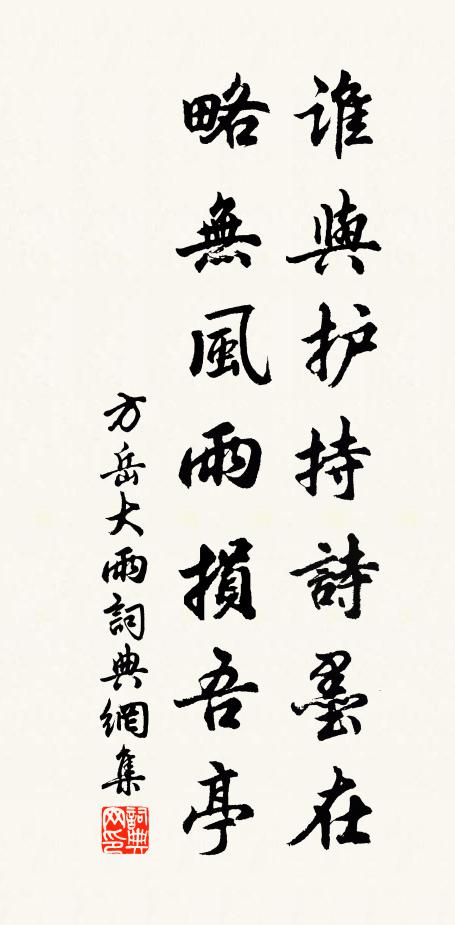 誰與护持詩墨在
略無風雨損吾亭
方岳大雨詞典網集
詞典網印